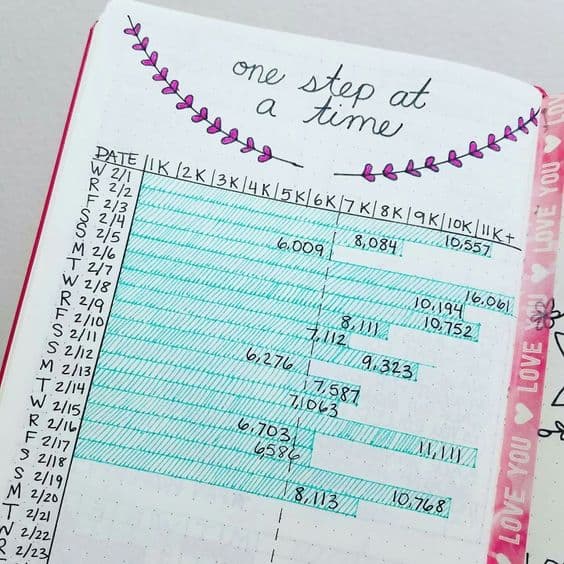 one step at
a time
DATE |1K |2K |3K |4K |5K |6K |7K |8K |9K |10K |11K+
W 2/1
R 2/2
F 2/3
S 2/4
S 2/5
M 2/6
T 2/7
W 2/8
R 2/9
F 2/10
S 2/11
S 2/12
M 2/13
T 2/14
W 2/15
R 2/16
F 2/17
S 2/18
S 2/19
M 2/20
T 2/21
W 2/22
R 2/23
10,557
8,084
6,009
16,061
10,194
10,752
8,111
7,112
9,323
6,276
7,587
7,063
11,111
6,703
6586
10,768
8,113
LOVE YOU ♥ LOVE YOU ♥ LOVE YOU ♥ LOVE YOU